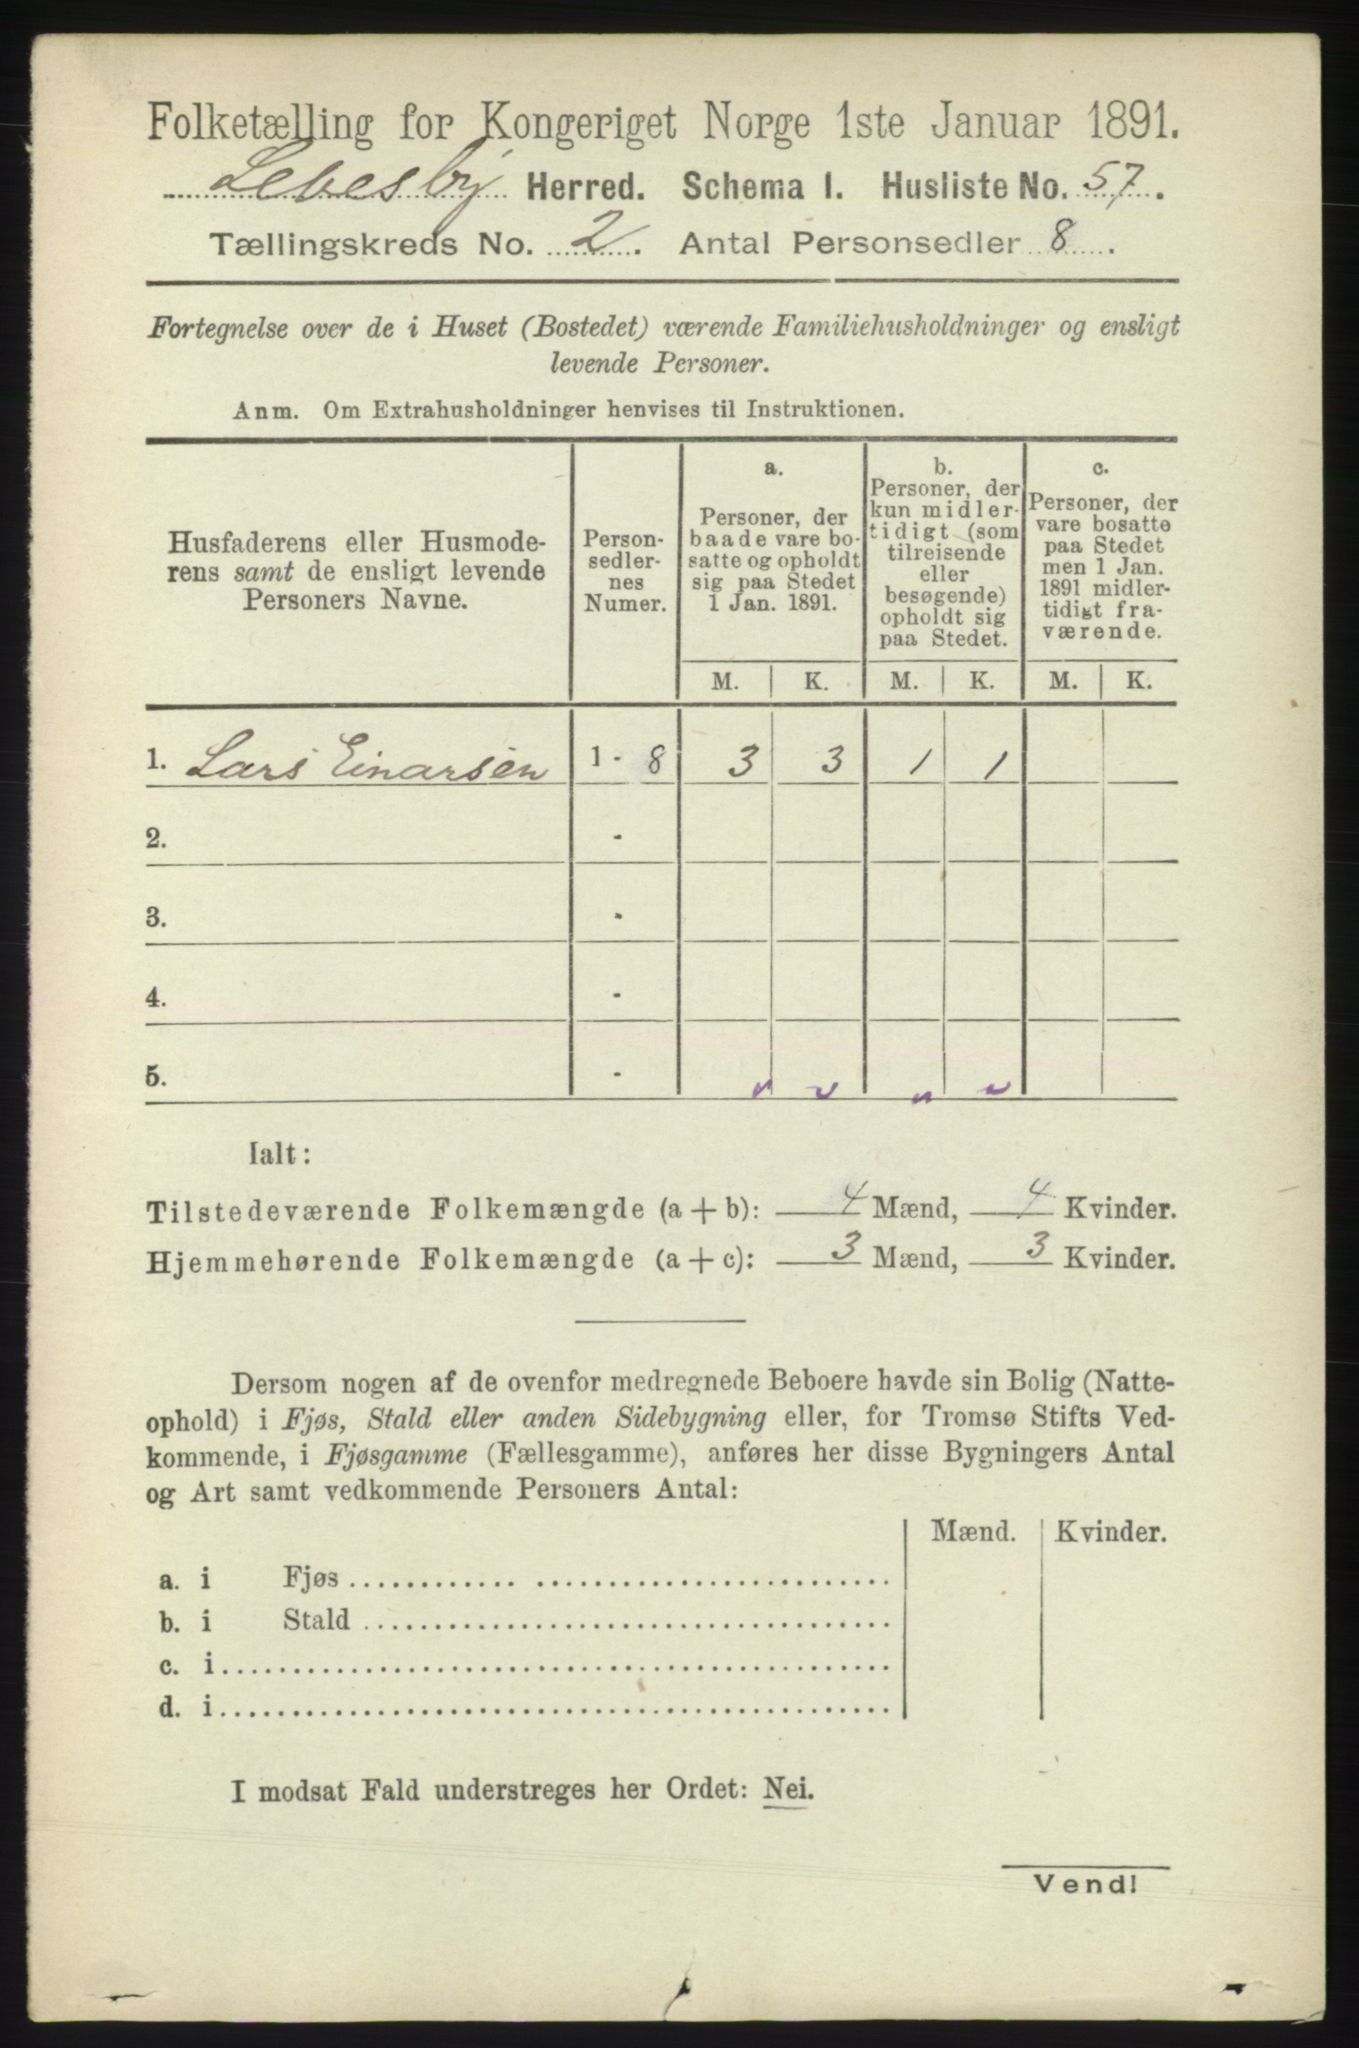 Folketælling for Kongeriget Norge 1ste Januar 1891.
Lebesby Herred. Schema 1. Husliste No. 57.
Tællingskreds No. 2. Antal Personsedler 8.
Fortegnelse over de i Huset (Bostedet) værende Familiehusholdninger og ensligt
levende Personer.
Anm. Om Extrahusholdninger henvises til Instruktionen.
Husfaderens eller Husmode-
rens samt de ensligt levende
Personers Navne.
Person-
sedler-
nes
Numer.
a.
Personer, der
baade vare bo-
satte og opholdt
sig paa Stedet
1 Jan. 1891.
b.
Personer, der
kun midler-
tidigt (som
tilreisende
eller
besøgende)
opholdt sig
paa Stedet.
c.
Personer, der
vare bosatte
paa Stedet
men 1 Jan.
1891 midler-
tidigt fra-
værende.
M. K. M. K. M. K.
1. Lars Einarsen 1 - 8 3 3 1 1
2. -
3. -
4. -
5. -
Ialt:
Tilstedeværende Folkemængde (a + b): 4 Mænd, 4 Kvinder.
Hjemmehørende Folkemængde (a + c): 3 Mænd, 3 Kvinder.
Dersom nogen af de ovenfor medregnede Beboere havde sin Bolig (Natte-
ophold) i Fjøs, Stald eller anden Sidebygning eller, for Tromsø Stifts Ved-
kommende, i Fjøsgamme (Fællesgamme), anføres her disse Bygningers Antal
og Art samt vedkommende Personers Antal:
Mænd. Kvinder.
a. i Fjøs
b. i Stald
c. i
d. i
I modsat Fald understreges her Ordet: Nei.
Vend!